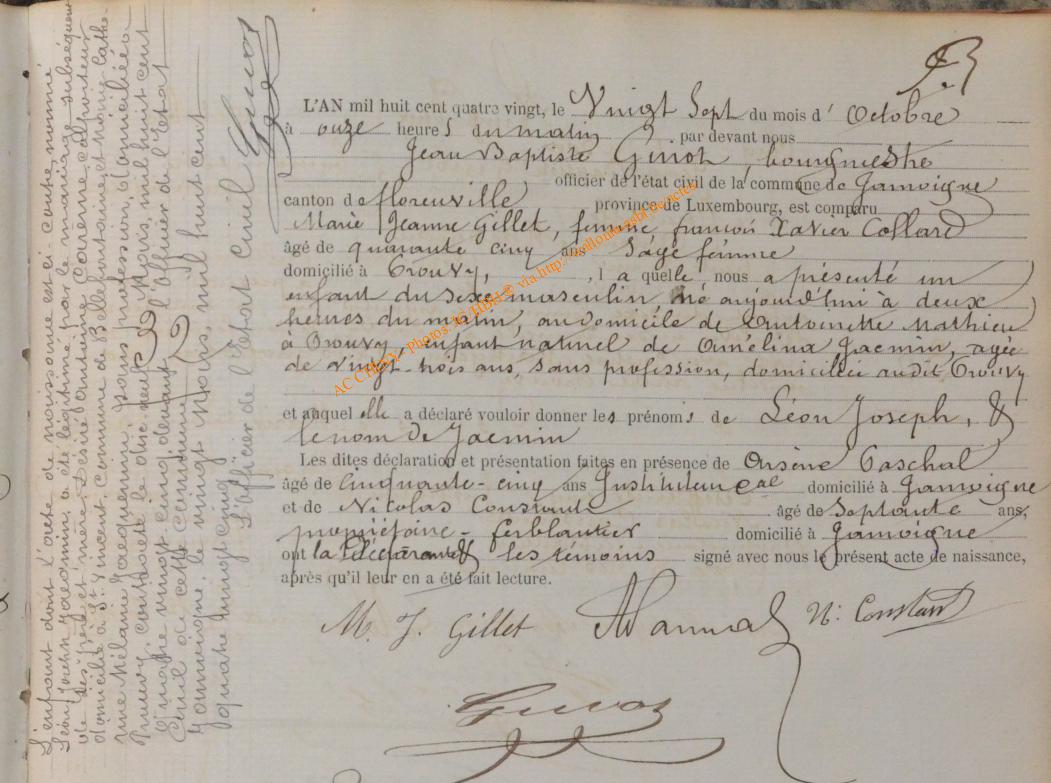 L'AN mil huit cent quatre vingt, le Vingt Sept du mois d' Octobre
à onze heures du matin par devant nous
Jean Baptiste bourgmestre
officier de l'état civil de la commune de Jamoigne
canton de florenville province de Luxembourg, est comparu
Marie Jeanne Gillet, femme françois Xavier Collard
âgé de quarante cinq ans Sage femme
domicilié à Prouvy, laquelle nous a présenté un
enfant du sexe masculin né aujourd'hui à deux
heures du matin, au domicile de Antoinette Mathieu
à Prouvy, enfant naturel de Jacmin, agée
de vingt-trois ans, sans profession, domiciliée audit Prouvy
et auquel elle a déclaré vouloir donner les prénoms de Léon Joseph, &
le nom de Jacmin
Les dites déclaration et présentation faites en présence de Arsène Paschal
âgé de Cinquante-cinq ans Instituteur domicilié à Jamoigne
et de Nicolas Constant âgé de Septante ans,
propriétaire - ferblantier domicilié à Jamoigne
ont la déclarante & les témoins signé avec nous le présent acte de naissance,
après qu'il leur en a été fait lecture.
M. J. Gillet N. Constant
L'enfant dont l'acte de naissance est ci-contre, nommé
Léon Joseph Jacmin, a été légitimé par le mariage subséquent
de ses père et mère, Désiré Antoine colporteur
domicilié à St Vincent, commune de Bellefontaine, et Marie Cathe-
rine Mélanie Jacquemin, sans profession, domiciliée à
Prouvy, contracté le dix neuf Mars, mil huit cent
quatre vingt cinq, devant l'officier de l'Etat
Civil de cette commune
Jamoigne, le vingt Mars, mil huit cent
quatre vingt cinq
L'officier de l'état civil
AC CHINY - Photos JG HBH © via http://bellomontibi.be/actes